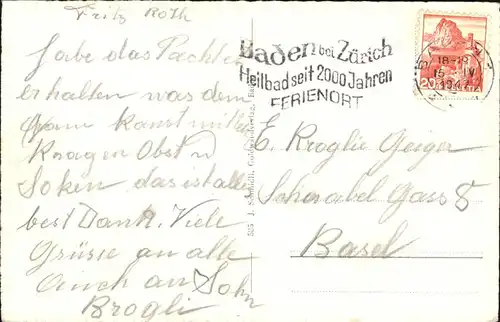 Fritz Roth
Habe das Packet
erhalten was dem
kanst mitte
Kragen Obst u
Soken das ist alles
best Dank. Viele
Grüsse an alle
Auch an Sohn
Brogli
Baden bei Zürich
Heilbad seit 2000 Jahren
FERIENORT
18-19
15 IV
194
20
E. Kroglie Geiger
Schnabel Gass 8
Basel